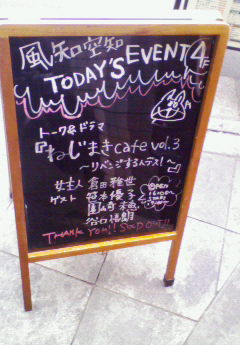 風知空知
TODAY'S EVENT 4F
トーク&ドラマ
『ねじまきcafe vol.3
〜リベンジするんデス!〜』
女主人 倉田雅世
ゲスト 笹本優子
谷口
OPEN
START
THANK YOU!! SOLD OUT!!